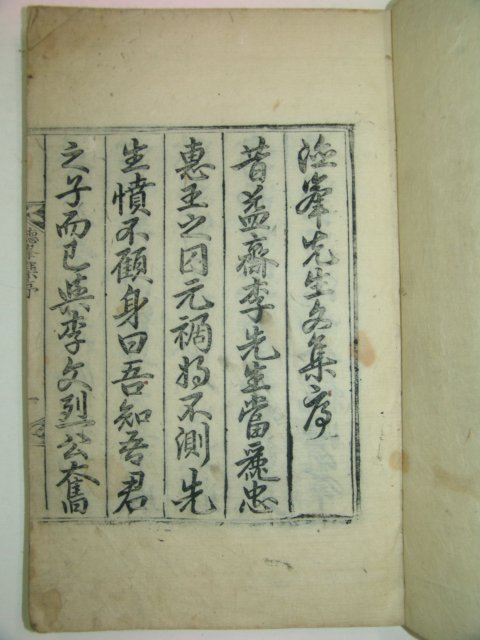 德峯先生文集序
昔益齋李先生當麗忠
惠王之囚元禍將不測先
生憤不顧身曰吾知吾君
之子而已與李文烈公奮
德峯集序